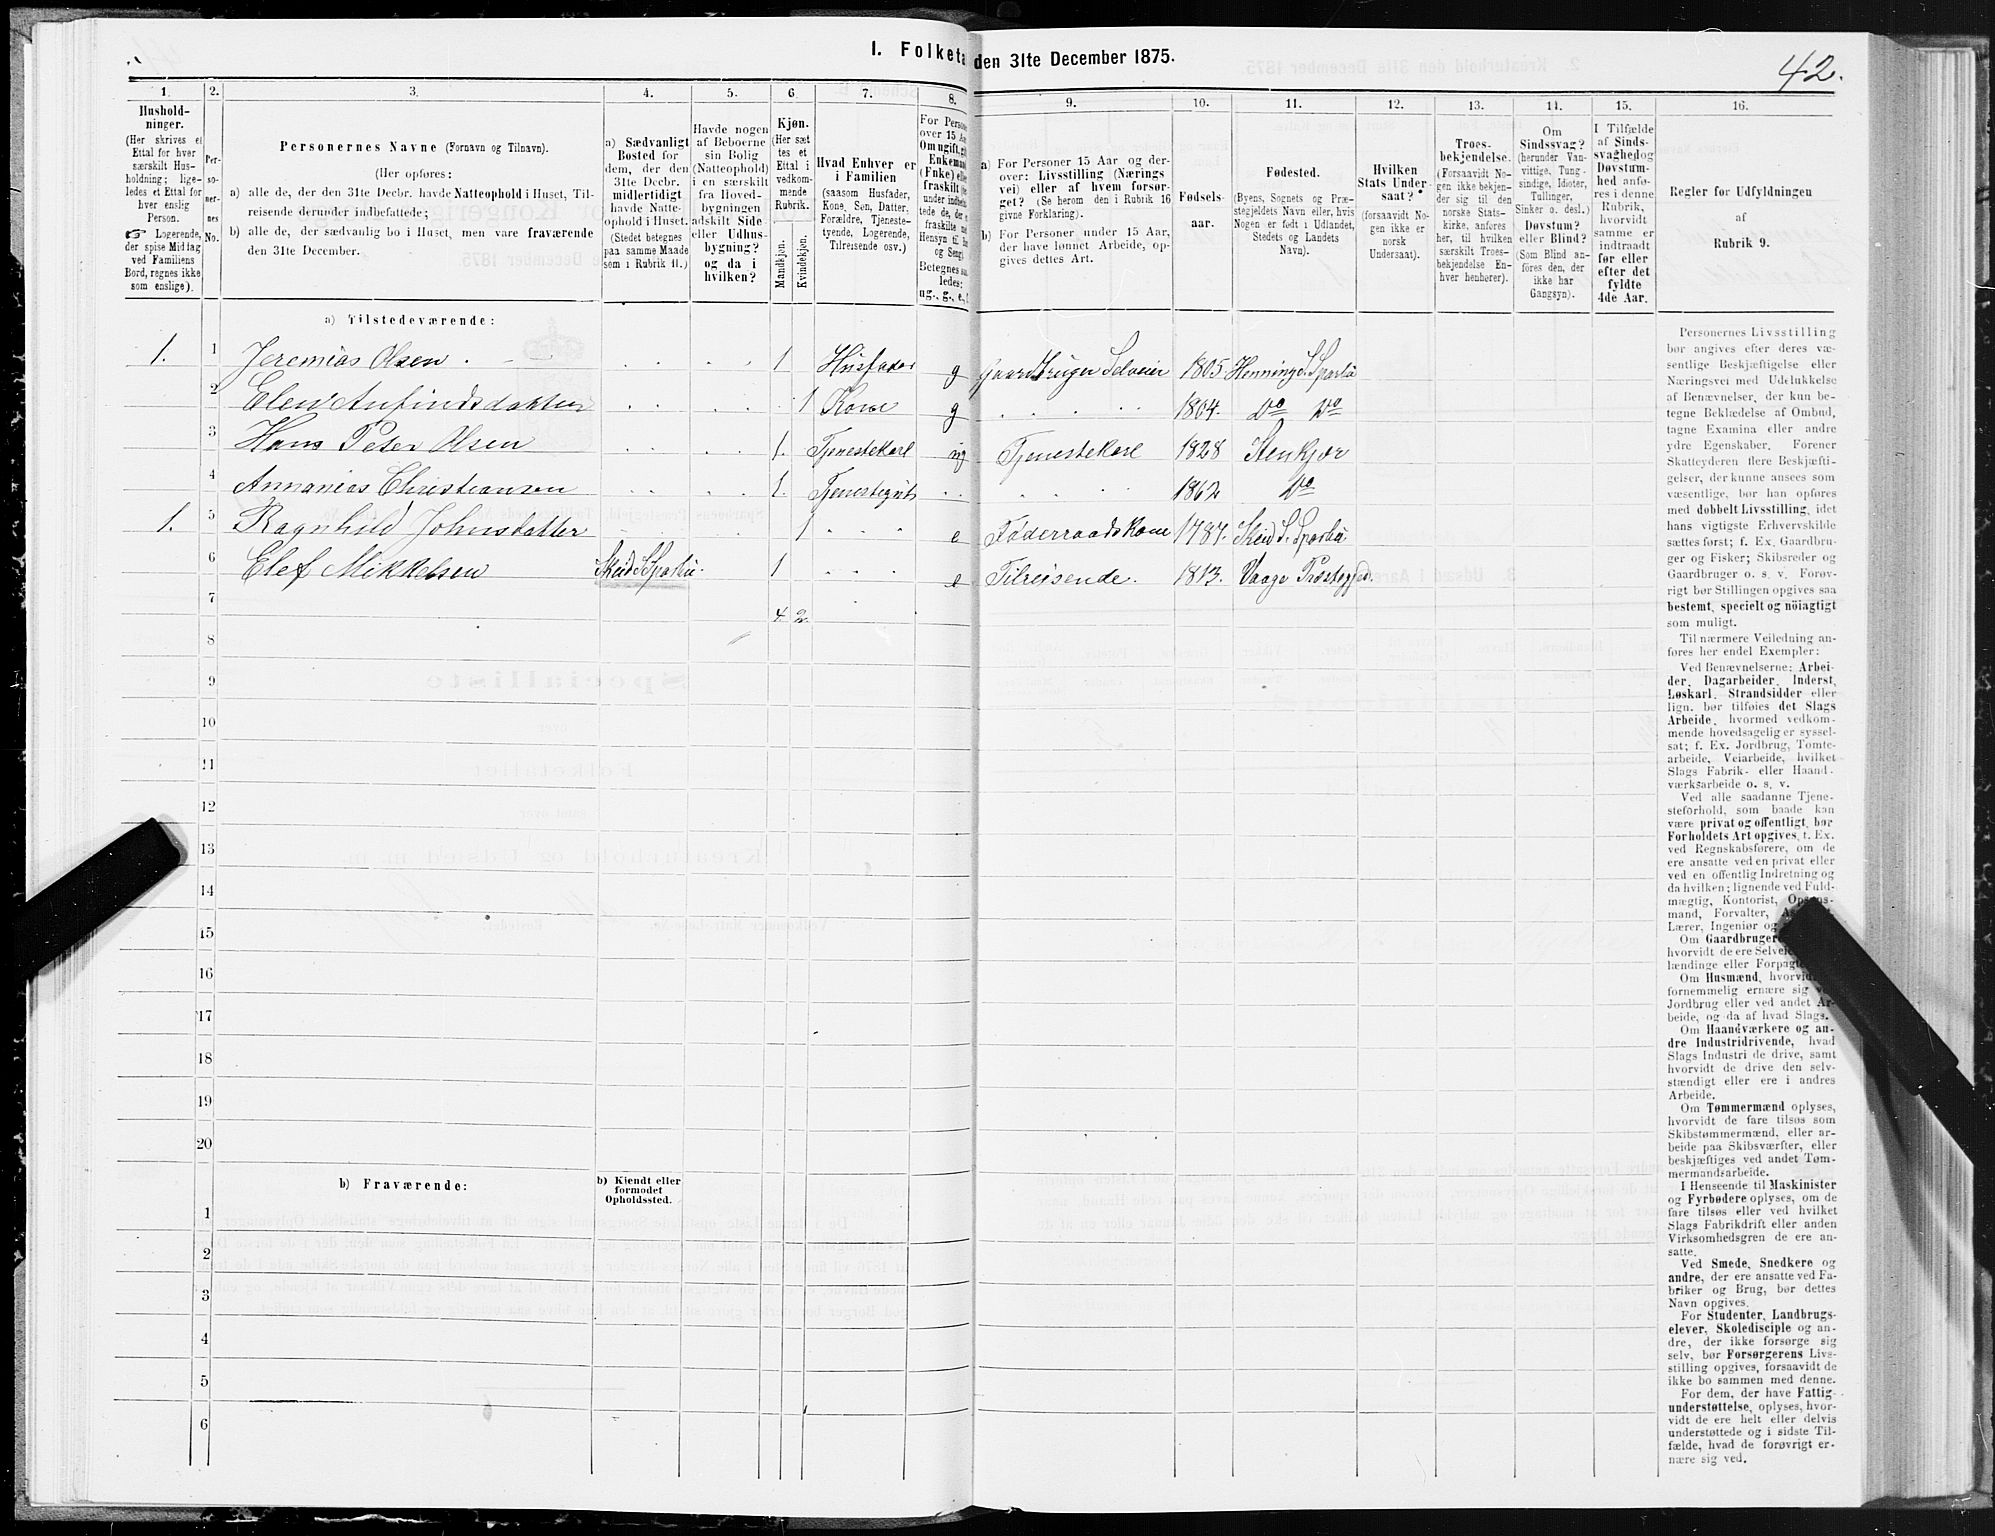 I. Folketa den 31te December 1875.
42.
1. 2. 3. 4. 5. 6. 7. 8. 9. 10. 11. 12. 13. 14. 15. 16.
Hushold-
ninger.
(Her skrives et
Ettal for hver
særskilt Hus-
holdning; lige-
ledes et Ettal for
hver enslig
Person.
☞ Logerende,
der spise Middag
ved Familiens
Bord, regnes ikke
som enslige).
Per-
so-
ner-
nes
No.
Personernes Navne (Fornavn og Tilnavn).
(Her opføres:
a) alle de, der den 31te Decbr. havde Natteophold i Huset, Til-
reisende derunder indbefattede;
b) alle de, der sædvanlig bo i Huset, men vare fraværende
den 31te December.
a) Sædvanligt
Bosted for
dem, der den
31te Decbr.
midlertidigt
havde Natte-
ophold i Huset.
(Stedet betegnes
paa samme Maade
som i Rubrik 11.)
Havde nogen
af Beboerne
sin Bolig
(Natteophold)
i en særskilt
fra Hoved-
bygningen
adskilt Side-
eller Udhus-
bygning?
og da i
hvilken?
Kjøn.
(Her sæt
tes et
Ettal i
vedkom-
mende
Rubrik.
Mandkjøn.
Kvindekjøn.
Hvad Enhver er
i Familien
(saasom Husfader,
Kone, Søn, Datter,
Forældre, Tjeneste-
tyende, Logerende,
Tilreisende osv.)
For Persone
over 15 Aa
Om ugift, gi
Enkeman
(Enke) elle
fraskilt (h
under indbe
tede de, der e
fraskilte me
Hensyn til. bo
og Seng).
Betegnes saa
ledes:
ug-, g-, e-, f
a) For Personer 15 Aar og der-
over: Livsstilling (Nærings
vei) eller af hvem forsør-
get? (Se herom den i Rubrik 16
givne Forklaring).
b) For Personer under 15 Aar,
der have lønnet Arbeide, op-
gives dettes Art.
Fødsels-
aar.
Fødested.
(Byens, Sognets og Præ-
stegjeldets Navn eller, hvis
Nogen er født i Udlandet,
Stedets og Landets
Navn).
Hvilken
Stats Under-
saat?
(forsaavidt No-
gen ikke er
norsk
Undersaat).
Troes-
bekjendelse.
(Forsaavidt No-
gen ikke bekjen-
der sig til den
norske Stats-
kirke, anføres
her, til hvilken
særskilt Troes-
bekjendelse En-
hver henhører).
Om
Sindssvag?
(herunder Van-
vittige, Tung-
sindige, Idioter,
Tullinger,
Sinker o. desl.)
Døvstum?
eller Blind?
(Som Blind an-
føres den, der
ikke har
Gangsyn).
I Tilfælde
af Sinds-
svaghed og
Døvstum-
hed anfø-
res i denne
Rubrik,
hvorvidt
samme er
indtraadt
før eller
efter det
fyldte
4de Aar.
Regler for Udfyldningen
af
Rubrik 9.
a) Tilstedeværende:
1. 1 Jeremias Olsen. 1 Husfader g Gaardbruger Selveier 1805 Henning S. Sparbu
2 Elen Anfindsdatter 1 Kone g 1804. Do Do
3 Hans Peter Olsen 1. Tjenestekarl ug Tjenestekarl 1828 Stenkjær
4 Annanias Christiansen 1. Tjenestegut 1862 Do
1. 5 Ragnhild Johnsdatter 1 e Føderraadskone 1787. Skeid S. Sparbu.
6 Elef Mikkelsen Skeid S Sparbu. 1 e Tilreisende. 1813. Vaage Præstegjed.
7 4 2
8
9
10
11
12
13
14
15
16
17
18
19
20
b) Fraværende:
b) Kiendt eller
formodet
Opholdssted.
1
2
3
4
5
6
Personernes Livsstilling
bør angives efter deres væ-
sentlige Beskjæftigelse eller
Næringsvei med Udelukkelse
af Benævnelser, der kun be-
tegne Beklædelse af Ombud,
tagne Examina eller andre
ydre Egenskaber. Forener
Skatteyderen flere Beskjæfti-
gelser, der kunne ansees som
væsentlige, bør han opføres
med dobbelt Livsstilling, idet
hans vigtigste Erhvervskilde
sættes først; f. Ex. Gaardbru-
ger og Fisker; Skibsreder og
Gaardbruger o. s. v. Forøv-
rigt bør Stillingen opgives saa
bestemt, specielt og nöiagtigt
som muligt.
Til nærmere Veiledning an-
føres her endel Exempler:
Ved Benævnelserne: Arbei-
der, Dagarbeider, Inderst,
Løskarl, Strandsidder eller
lign. bør tilføies det Slags
Arbeide, hvormed vedkom-
mende hovedsagelig er syssel-
sat; f. Ex. Jordbrug, Tomte-
arbeide, Veiarbeide, hvilket
Slags Fabrik- eller Haand-
værksarbeide o. s. v.
Ved alle saadanne Tjene-
steforhold, som baade kan
være privat og offentligt, bør
Forholdets Art opgives, f. Ex.
ved Regnskabsførere, om de
ere ansatte ved en privat eller
ved en offentlig Indretning og
da hvilken; lignende ved Fuld-
mægtig, Kontorist, Opsyns-
mand, Forvalter, As
Lærer, Ingeniør og
Om Gaardbruger
hvorvidt de ere Selveie
lændinge eller Forpagte
Om Husmænd, hvorvid
fornemmelig ernære sig v
Jordbrug eller ved andet Ar-
beide, og da af hvad Slags.
Om Haandværkere og an-
dre Industridrivende, hvad
Slags Industri de drive, samt
hvorvidt de drive den selv-
stændigt eller ere i andres
Arbeide.
Om Tømmermænd oplyses,
hvorvidt de fare tilsøs som
Skibstømmermænd, eller ar-
beide paa Skibsværfter, eller
beskjæftiges ved andet Tøm-
mermandsarbeide.
I Henseende til Maskinister
og Fyrbødere oplyses, om de
fare tilsøs eller ved hvilket
Slags Fabrikdrift eller anden
Virksomhedsgren de ere an-
satte.
Ved Smede, Snedkere og
andre, der ere ansatte ved Fa-
briker og Brug, bør dettes
Navn opgives.
For Studenter, Landbrugs-
elever, Skoledisciple og an-
dre, der ikke forsørge sig
selv, bør Forsørgerens Livs-
stilling opgives, forsaavidt de
ikke bo sammen med denne.
For dem, der have Fattig-
understøttelse, oplyses, hvor-
vidt de ere helt eller delvis
understøttede og i sidste Til-
fælde, hvad de forøvrigt er-
nære sig ved.